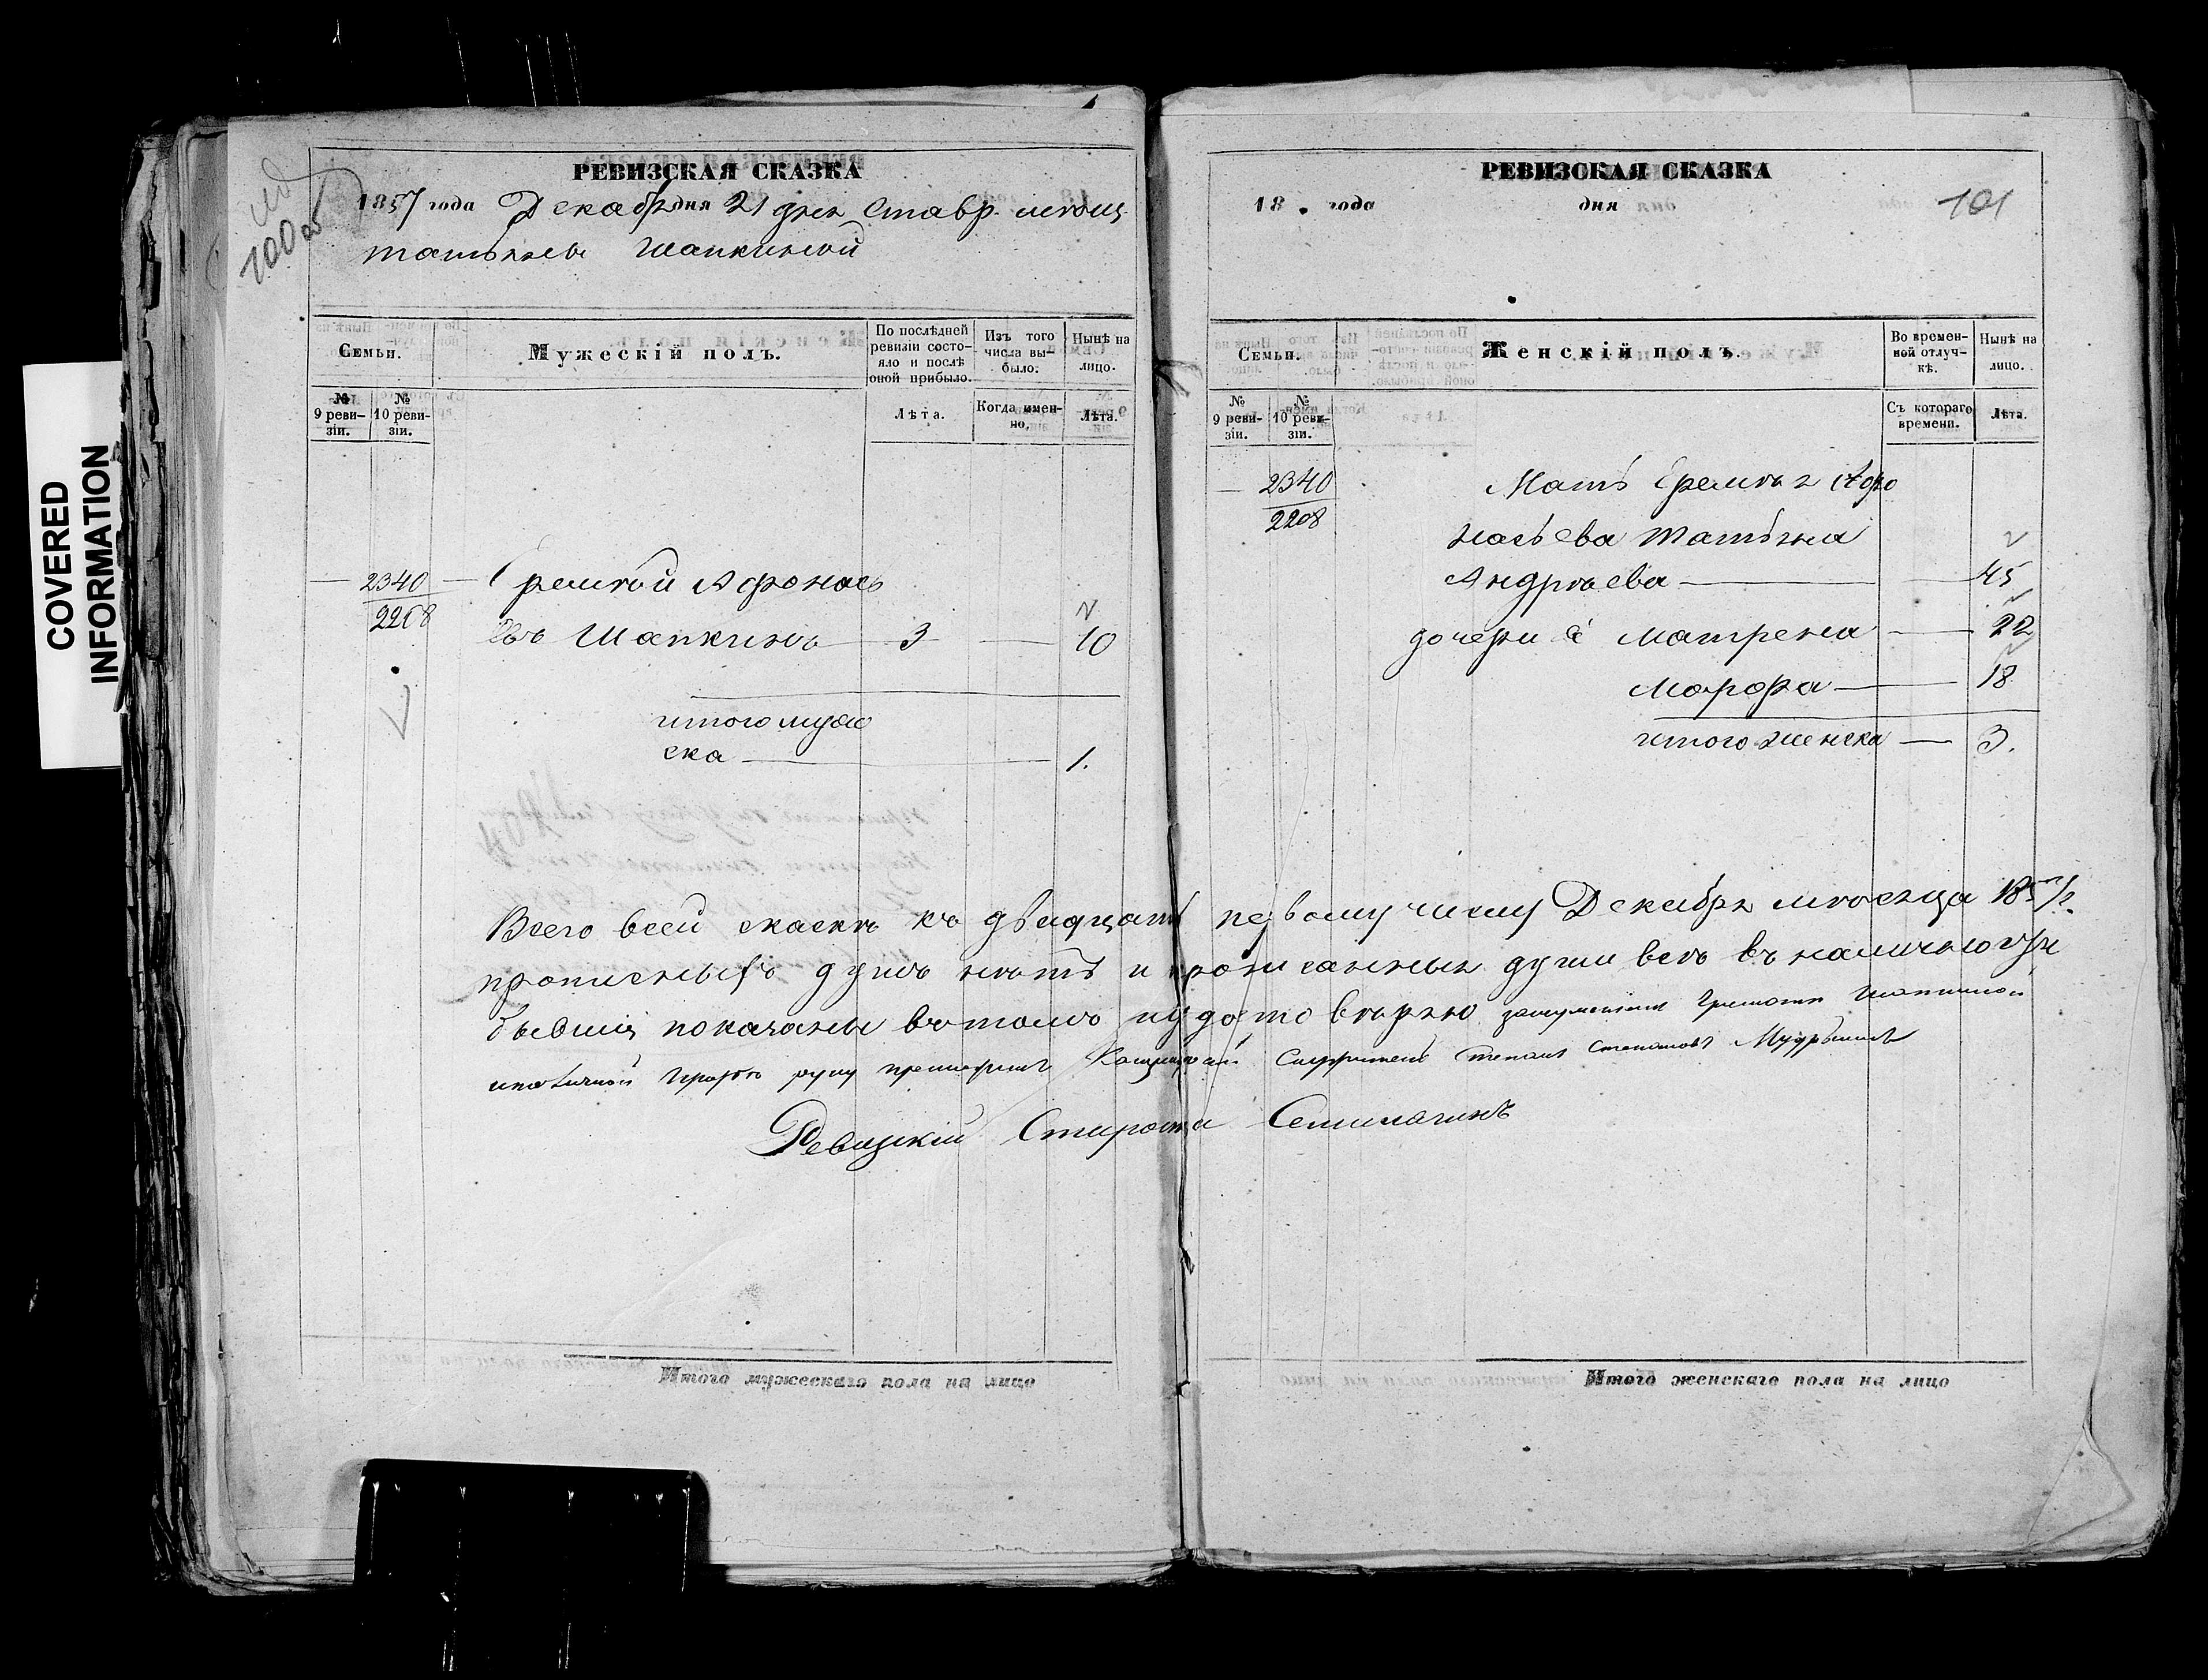 COVERED
INFORMATION
100 об
РЕВИЗСКАЯ СКАЗКА
1857 года Декабря дня 21 дня Ставр. мѣщ.
татьяны Шапкиной
Семьи.
Мужескій полъ.
По послѣдней ревизіи состояло и послѣ оной прибыло.
Изъ того числа выбыло.
Нынѣ на лицо.
№ 9 ревизіи.
№ 10 ревизіи.
Лѣта.
Когда именно.
Лѣта.
2340 — Еремѣй Афонась
2208 евъ Шапкинъ — 3 — 10
итого муже
ска — 1.
РЕВИЗСКАЯ СКАЗКА
18 года дня
101
Семьи.
Женскій полъ.
Во временной отлучкѣ.
Нынѣ на лицо.
№ 9 ревизіи.
№ 10 ревизіи.
Съ котораго времени.
Лѣта.
2340 Мать Еремѣя Афо
2208 насьева татьяна
Андрѣева — 45
дочери ё матрена — 22
марфа — 18
итого женска — 3.
Всего всей скаскѣ къ двадцать первому числу Декабря мѣсяца 1857 г.
прописныхъ душъ нѣтъ и прописанныя души всѣ въ наличности
бывшія показаны вътомъ и удостовѣряю
Степанъ Степановъ
Ревизкій Староста
Итого мужескаго пола на лицо
Итого женскаго пола на лицо